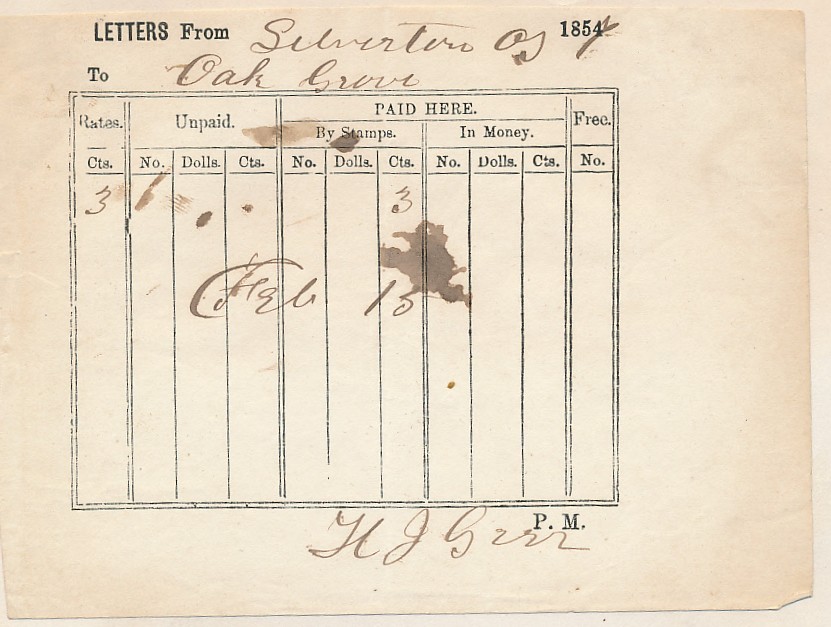 LETTERS From Silverton OJ 1854 7
To Oak Grove
Rates. Unpaid. PAID HERE. Free.
By Stamps. In Money.
Cts. No. Dolls. Cts. No. Dolls. Cts. No. Dolls. Cts. No.
3 1 3
Feb 15
P. M.
H J Greer